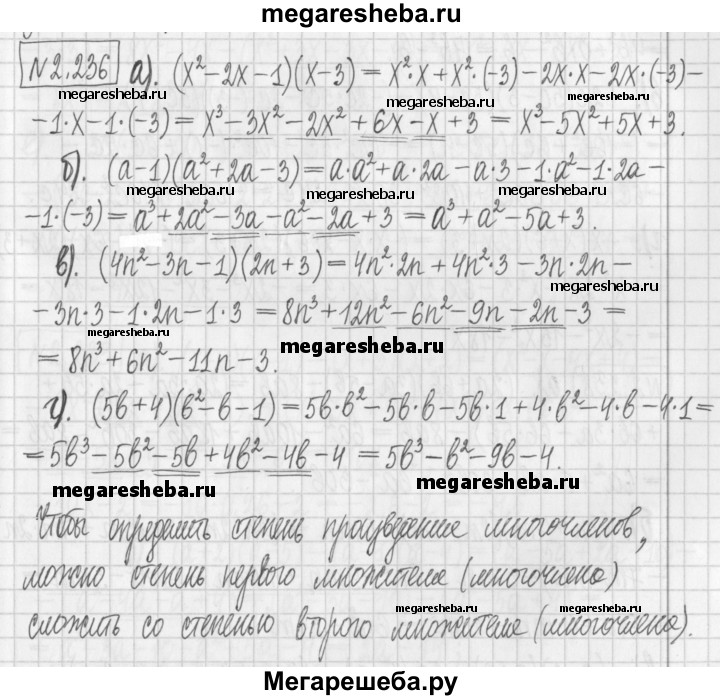 megaresheba.ru
№2.236 а). (x²-2x-1)(x-3) = x²·x+x²·(-3)-2x·x-2x·(-3)-
megaresheba.ru megaresheba.ru megaresheba.ru
-1·x-1·(-3) = x³-3x²-2x²+6x-x+3 = x³-5x²+5x+3.
б). (a-1)(a²+2a-3) = a·a²+a·2a-a·3-1·a²-1·2a-
megaresheba.ru megaresheba.ru megaresheba.ru
-1·(-3) = a³+2a²-3a-a²-2a+3 = a³+a²-5a+3.
в). (4n²-3n-1)(2n+3) = 4n²·2n+4n²·3-3n·2n-
-3n·3-1·2n-1·3 = 8n³+12n²-6n²-9n-2n-3 =
megaresheba.ru megaresheba.ru megaresheba.ru
= 8n³+6n²-11n-3.
г). (5b+4)(b²-b-1) = 5b·b²-5b·b-5b·1+4·b²-4·b-4·1=
= 5b³-5b²-5b+4b²-4b-4 = 5b³-b²-9b-4.
megaresheba.ru megaresheba.ru
Чтобы определить степень произведение многочленов,
можно степень первого множителя (многочлена)
megaresheba.ru megaresheba.ru
сложить со степенью второго множителя (многочлена).
Мегарешеба.ру